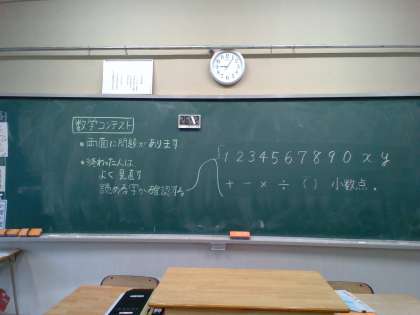 数学コンテスト
•両面に問題があります
•終わった人は、
よく見直す
読める字か確認する
1 2 3 4 5 6 7 8 9 0 x y
+ - × ÷ ( ) 小数点 .